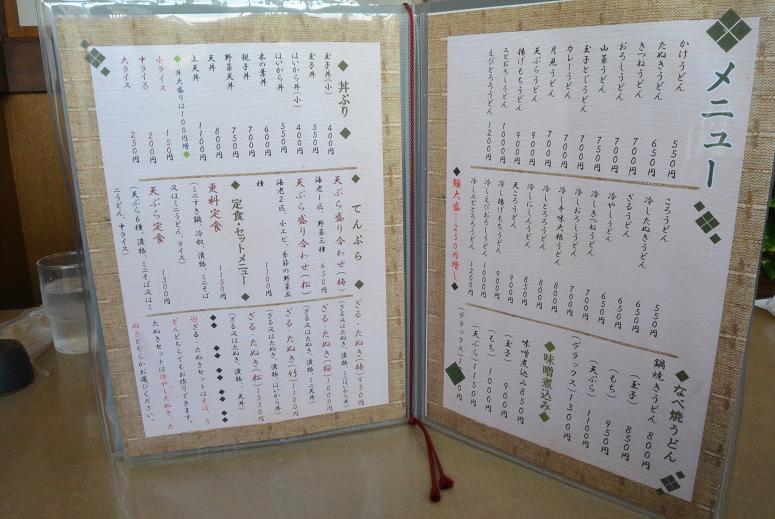 メニュー
かけうどん 550円
たぬきうどん 650円
きつねうどん 700円
おろしうどん 700円
山菜うどん 750円
玉子とじうどん 700円
カレーうどん
月見うどん 700円
天ぷらうどん 900円
揚げもちうどん 900円
エビおろしうどん 1000円
えびとろろうどん 1200円
ころうどん 550円
冷したぬきうどん 650円
ざるうどん 650円
冷しきつねうどん 700円
冷しおろしうどん 700円
冷し辛味大根うどん 800円
冷しとろろうどん 800円
冷しにしんうどん 850円
天ころうどん 900円
冷し揚げもちうどん 900円
冷しえびおろしうどん 1000円
冷しえびとろろうどん 1200円
◆麺大盛…250円増し◆
◆なべ焼うどん◆
鍋焼きうどん 800円
(玉子) 850円
(もち) 950円
(天ぷら) 1100円
(デラックス) 1300円
◆味噌煮込み◆
味噌煮込み 850円
(玉子) 900円
(もち) 1000円
(天ぷら) 1150円
(デラックス)
◆丼ぶり◆
玉子丼(小) 400円
玉子丼 550円
はいから丼(小) 400円
はいから丼 550円
木の葉丼 600円
親子丼 700円
野菜天丼 750円
天丼 800円
上天丼 1100円
◆丼大盛りは100円増◆
小ライス 150円
中ライス 200円
大ライス 250円
◆てんぷら◆
天ぷら盛り合わせ(梅)
海老1匹、野菜三種 650円
天ぷら盛り合わせ(松)
海老2匹、小エビ、季節の野菜五種 1100円
◆定食・セットメニュー◆
更科定食 1150円
(ミニすき鍋、冷奴、漬物、ミニそば又はミニうどん、ライス)
天ぷら定食 1300円
(天ぷら6種、漬物、ミニそば又はミニうどん、中ライス)
ざる・たぬき(梅) 950円
(ざる又はたぬき、漬物、ミニはいから丼)
ざる・たぬき(桜) 1000円
(ざる又はたぬき、漬物、ミニ天丼)
ざる・たぬき(竹) 1100円
(ざる又はたぬき、漬物、はいから丼)
ざる・たぬき(松) 1350円
(ざる又はたぬき、漬物、天丼)
◆◆◆◆◆◆◆
※ざる・たぬきセットはそば、うどんどちらでもお作りできます。
たぬきセットは冷やしたぬき、たぬきどちらかお選びください。